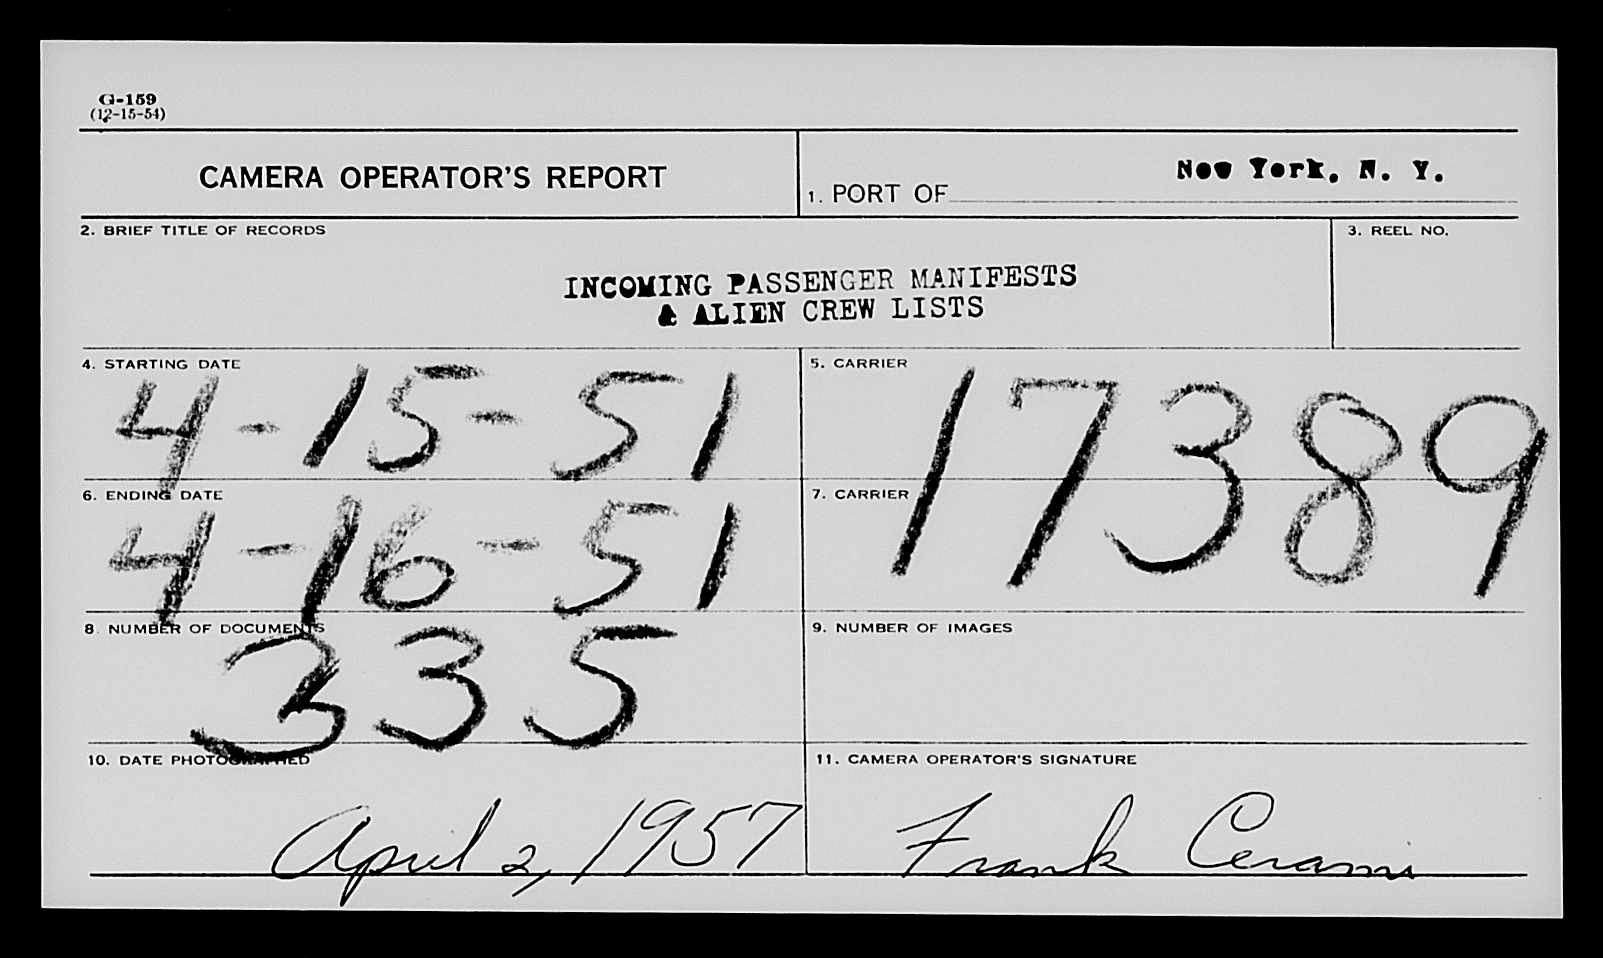 G-159
(12-15-54)
CAMERA OPERATOR'S REPORT
1. PORT OF New York, N. Y.
2. BRIEF TITLE OF RECORDS
3. REEL NO.
INCOMING PASSENGER MANIFESTS
& ALIEN CREW LISTS
4. STARTING DATE
4-15-51
5. CARRIER
17389
6. ENDING DATE
4-16-51
7. CARRIER
8. NUMBER OF DOCUMENTS
335
9. NUMBER OF IMAGES
10. DATE PHOTOGRAPHED
April 2, 1957
11. CAMERA OPERATOR'S SIGNATURE
Frank Cerami